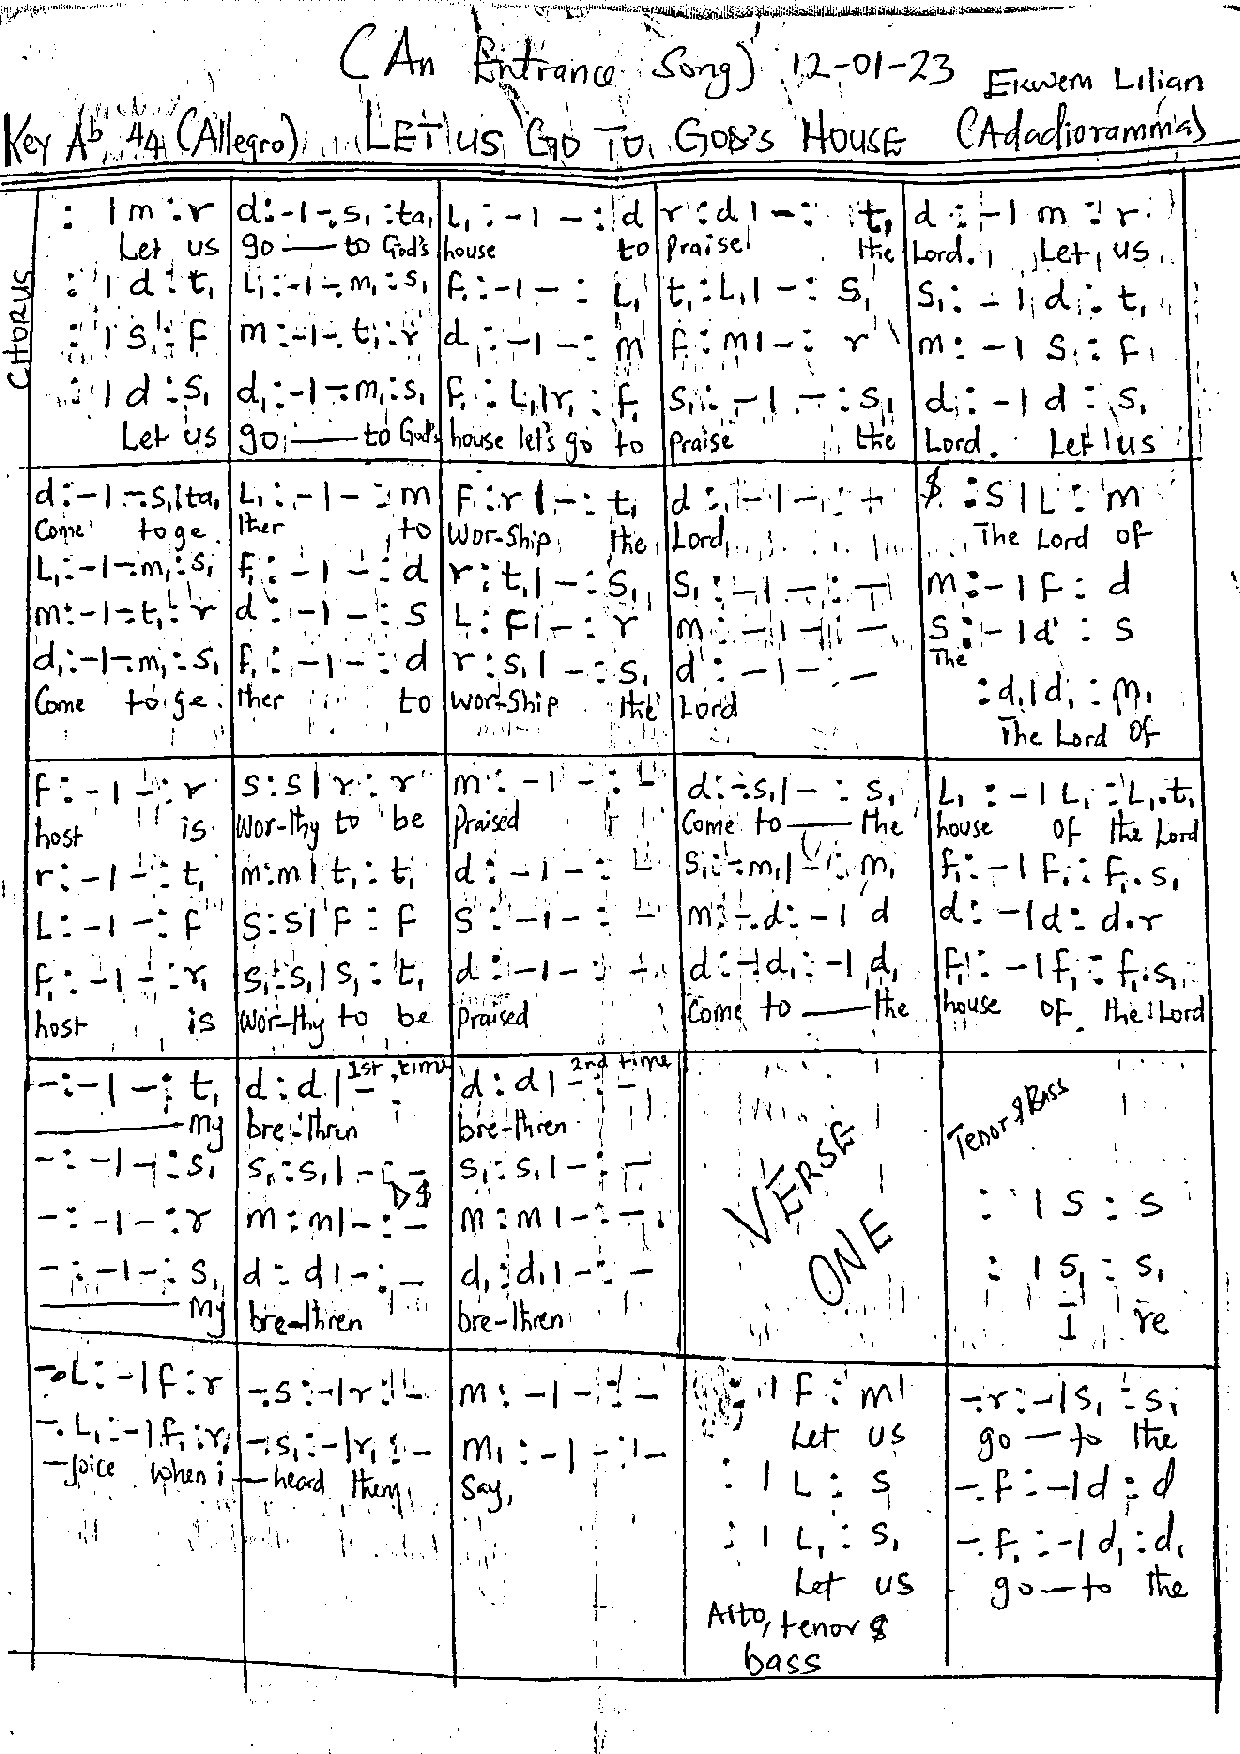 (An Entrance Song) 12-01-23
Ekwem Lilian
Key Ab 4/4 (Allegro) LET US GO TO GOD'S HOUSE (Adadioramma)
CHORUS
: | m : r | d : - | - . s, : ta, | L, : - | - : d | r : d | - : t, | d : - | m : r
Let us go — to God's house to Praise the Lord. Let us
: | d : t, | L, : - | - . m, : s, | f, : - | - : L, | t, : L, | - : s, | s, : - | d : t,
: | s : f | m : - | - . t, : r | d : - | - : m | f : m | - : r | m : - | s : f
: | d : s, | d, : - | - . m, : s, | f, : L, | r, : f, | s, : - | - : s, | d : - | d : s,
Let us go — to God's house let's go to Praise the Lord. Let us
d : - | - . s, | ta, | L, : - | - : m | F : r | - : t, | d : - | - : - | $ : s | L : m
Come toge. ther to Wor-ship the Lord, The Lord of
L, : - | - . m, : s, | f, : - | - : d | r : t, | - : s, | s, : - | - : - | m : - | f : d
m : - | - . t, : r | d : - | - : s | L : f | - : r | m : - | - : - | s : - | d' : s
The
d, : - | - . m, : s, | f, : - | - : d | r : s, | - : s, | d : - | - : - | : d, | d, : m,
Come toge. ther to Wor-ship the Lord The Lord Of
f : - | - : r | s : s | r : r | m : - | - : - | d : - . s, | - : s, | L, : - | L, : L, . t,
host is Wor-thy to be Praised Come to — the house of the Lord
r : - | - : t, | m : m | t, : t, | d : - | - : - | s, : - . m, | - : m, | f, : - | f, : f, . s,
L : - | - : f | s : s | f : f | s : - | - : - | m : - . d : - | d | d : - | d : d . r
f, : - | - : r, | s, : s, | s, : t, | d : - | - : - | d : - | d, : - | d, | f, : - | f, : f, . s,
host is Wor-thy to be Praised Come to — the house of the Lord
1st time 2nd time
- : - | - : t, | d : d | - : - | d : d | - : -
— My bre-thren bre-thren
- : - | - : s, | s, : s, | - : - | s, : s, | - : -
D$
- : - | - : r | m : m | - : - | m : m | - : -
- : - | - : s, | d : d | - : - | d, : d, | - : -
— My bre-thren bre-thren
VERSE ONE
Tenor & Bass
: | s : s
: | s, : s,
I re
- . L : - | f : r | - . s : - | r : - | m : - | - : - | : | f : m | - . r : - | s, : s,
Let us go — to the
- . L, : - | f, : r, | - . s, : - | r, : - | m, : - | - : - | : | L : s | - . f : - | d : d
- joice when i — heard them Say,
: | L, : s, | - . f, : - | d, : d,
Let us go — to the
Alto, tenor &
bass